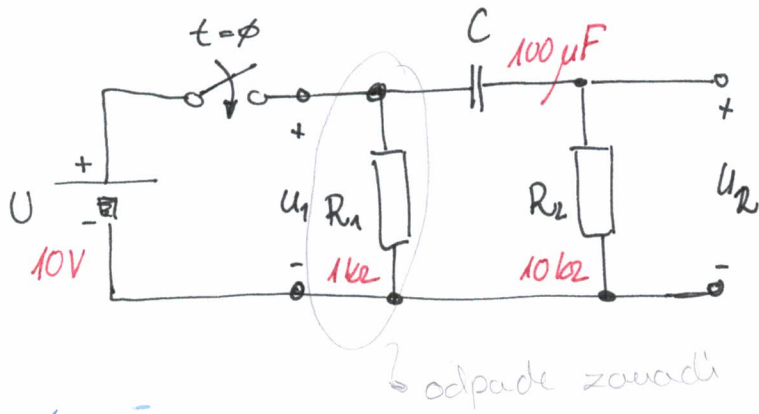 t=ϕ
C
100 μF
+
+
+
U
-
10V
u₁
R₁
1kΩ
R₂
10kΩ
u₂
-
-
odpade zaradi